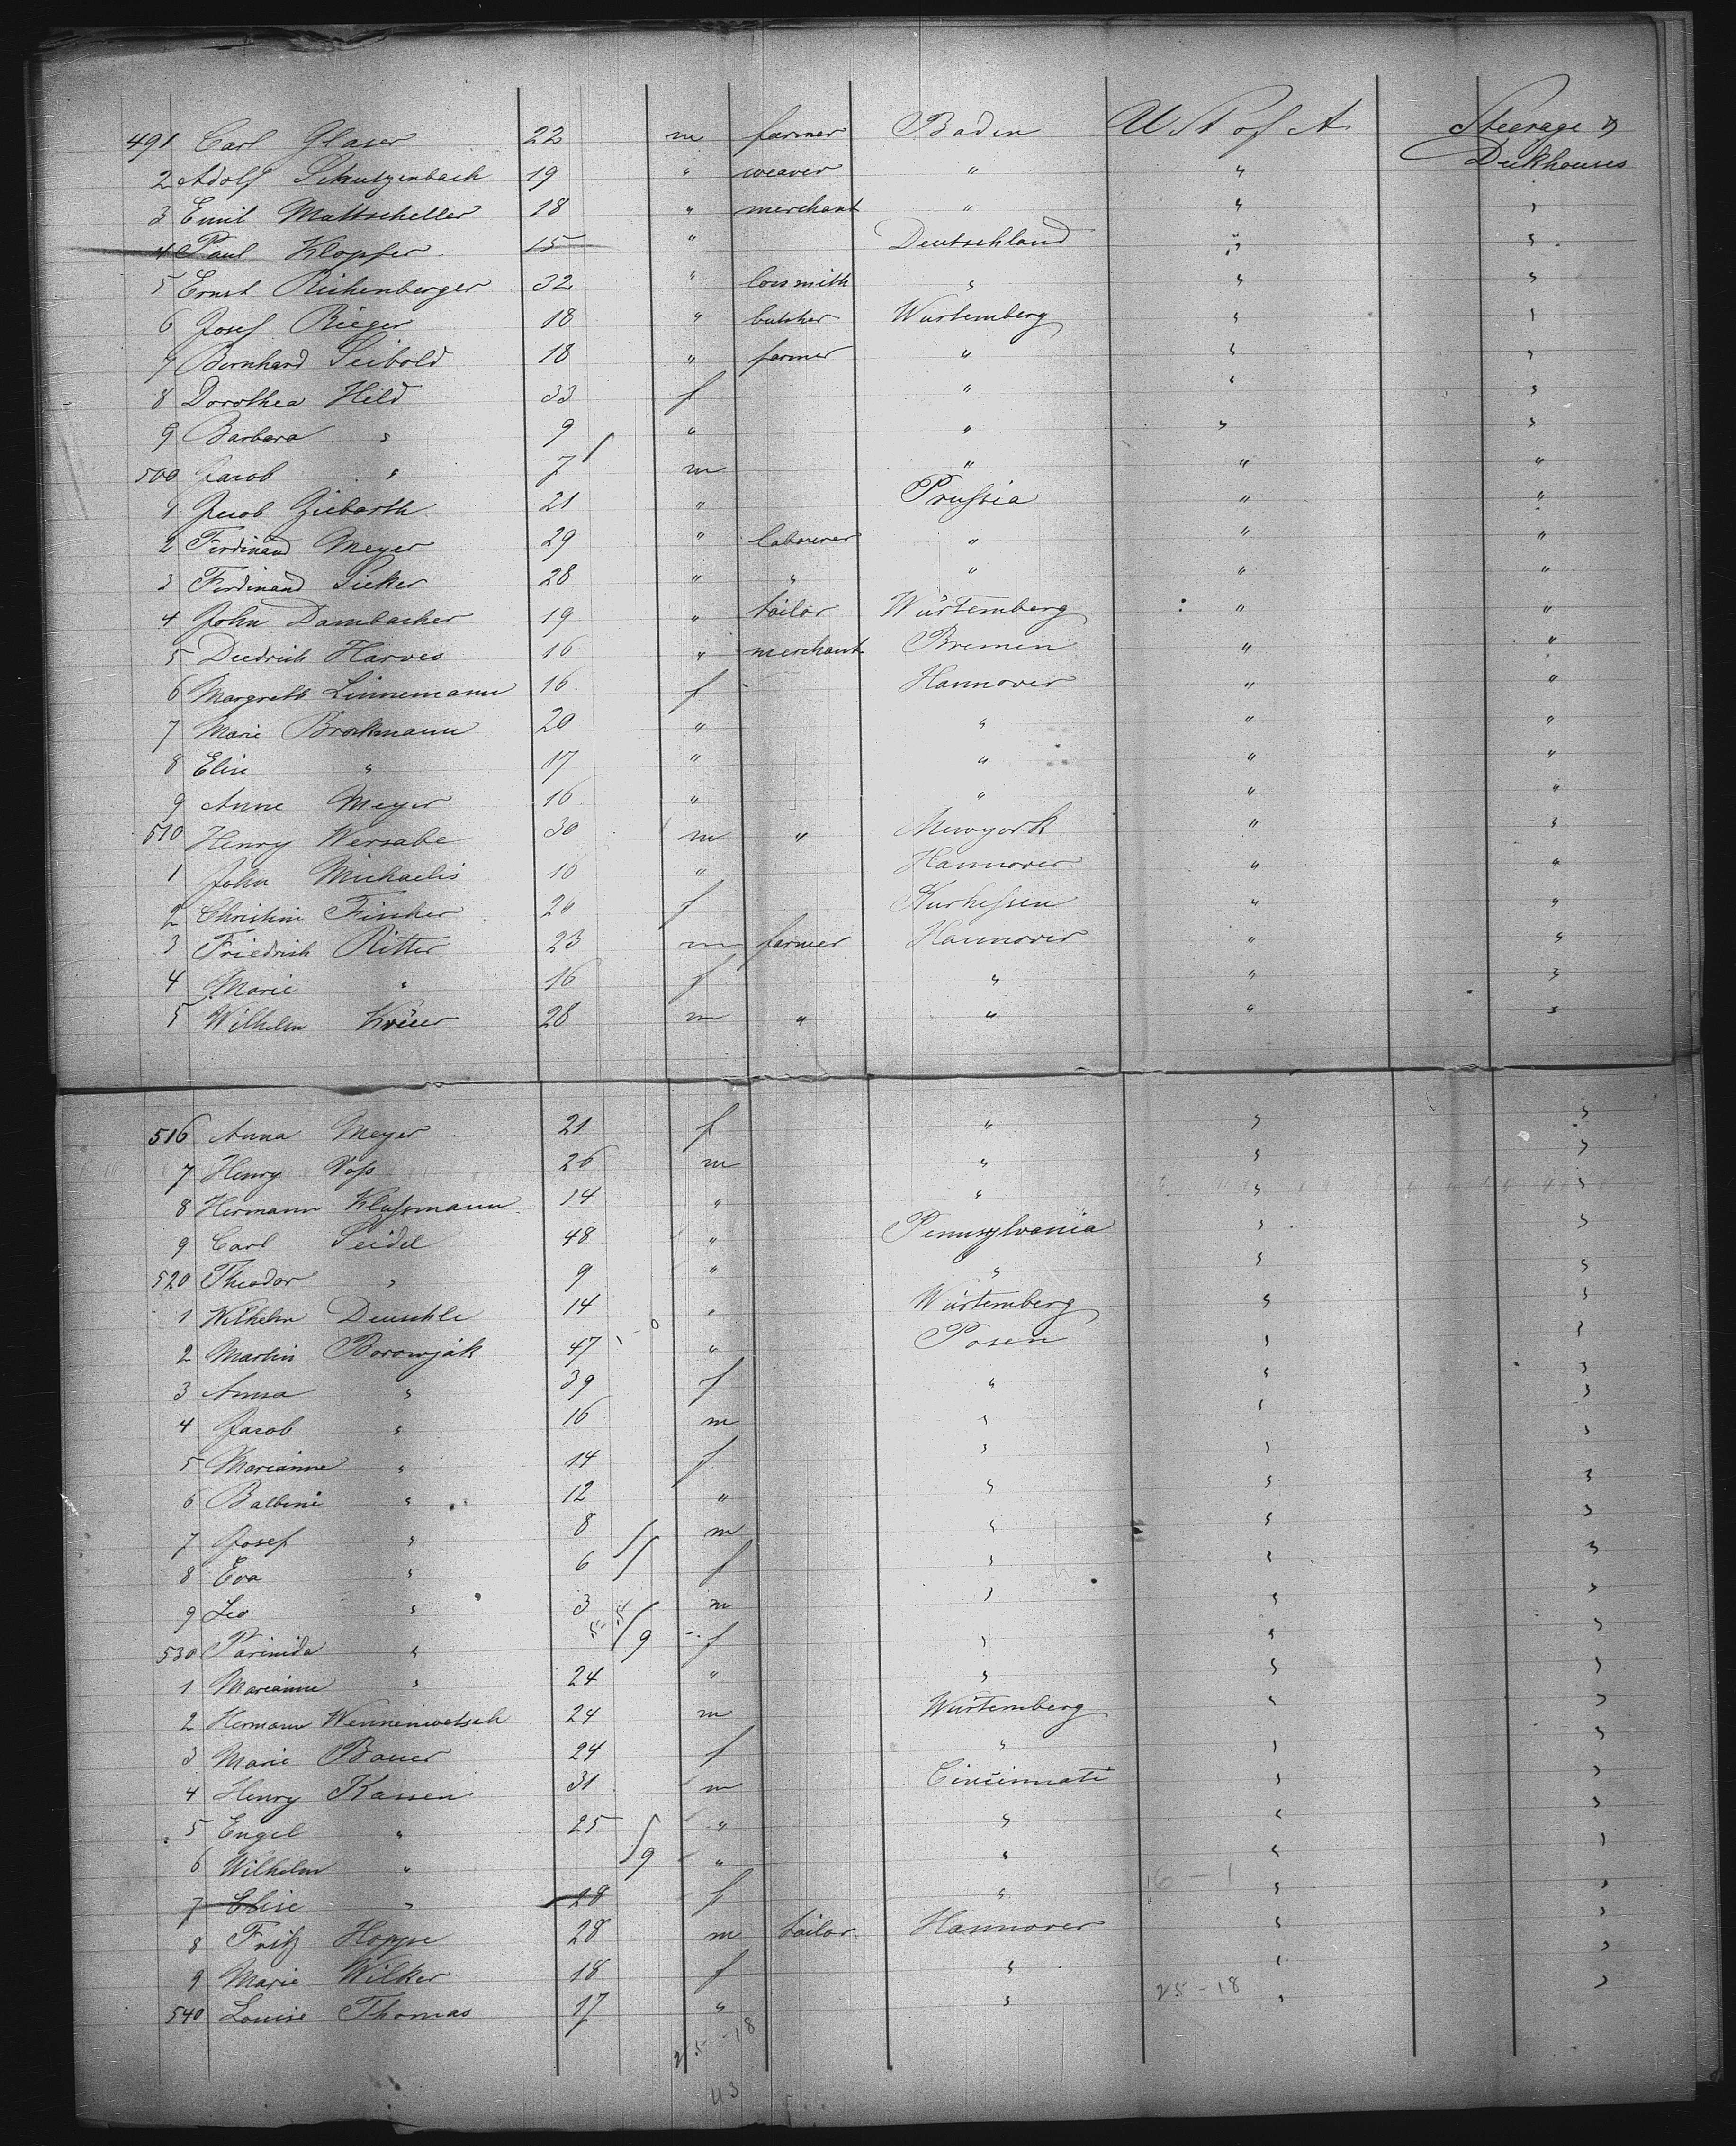 491 Carl Glaser 22 m farmer Baden U St of A Steerage &
Deckhouses
2 Adolf Schutzenbach 19 " weaver " "
3 Emil Muttscheller 18 " merchant " " "
4 Paul Klopfer 15 " Deutschland " "
5 Ernst Richenberger 32 " locsmith " " "
6 Josef Rieger 18 " butcher Wurtemberg " "
7 Bernhard Seibold 18 " farmer " " "
8 Dorothea Hild 33 f " " "
9 Barbara " 9 " " " "
500 Jacob " 7 m " " "
1 Jacob Ziebarth 21 " Prussia " "
2 Ferdinand Meyer 29 " labourer " " "
3 Ferdinand Sicker 28 " " " " "
4 John Dambacher 19 " tailor Würtemberg " "
5 Diedrich Harves 16 " merchant Bremen " "
6 Margreth Linnemann 16 f Hannover " "
7 Marie Brockmann 20 " " " "
8 Elise " 17 " " " "
9 Anne Meyer 16 " " " "
510 Henry Wersabe 30 m " Newyork " "
1 John Michaelis 10 " Hannover " "
2 Christine Fischer 20 f Kurhessen " "
3 Friedrich Ritter 23 m farmer Hannover " "
4 Marie " 16 f " " "
5 Wilhelm 28 m " " " "
516 Anna Meyer 21 f " " "
7 Henry Voss 26 m " " "
8 Hermann Klussmann 14 " " " "
9 Carl Seidel 48 " Pennsylvania " "
520 Theodor " 9 " " " "
1 Wilhelm Deuschle 14 " Würtemberg " "
2 Martin Borowjak 47 " Posen " "
3 Anna " 39 f " " "
4 Jacob " 16 m " " "
5 Marianne " 14 f " " "
6 Balbine " 12 " " " "
7 Josef " 8 m " " "
8 Eva " 6 f " " "
9 Leo " 3 m " " "
530 " 9 f " " "
1 Marianne " 24 " " " "
2 Hermann Wennenwetsch 24 m Würtemberg " "
3 Marie Bauer 24 f " " "
4 Henry Kassen 31 m Cincinnati " "
5 Engel " 25 " " " "
6 Wilhelm " 9 " " " "
7 Elise " 28 f " " "
16 - 1
8 Fritz Hoppe 28 m tailor Hannover " "
9 Marie Wilker 18 f " " "
540 Louise Thomas 17 " " 25 - 18 " "
25 - 18
43